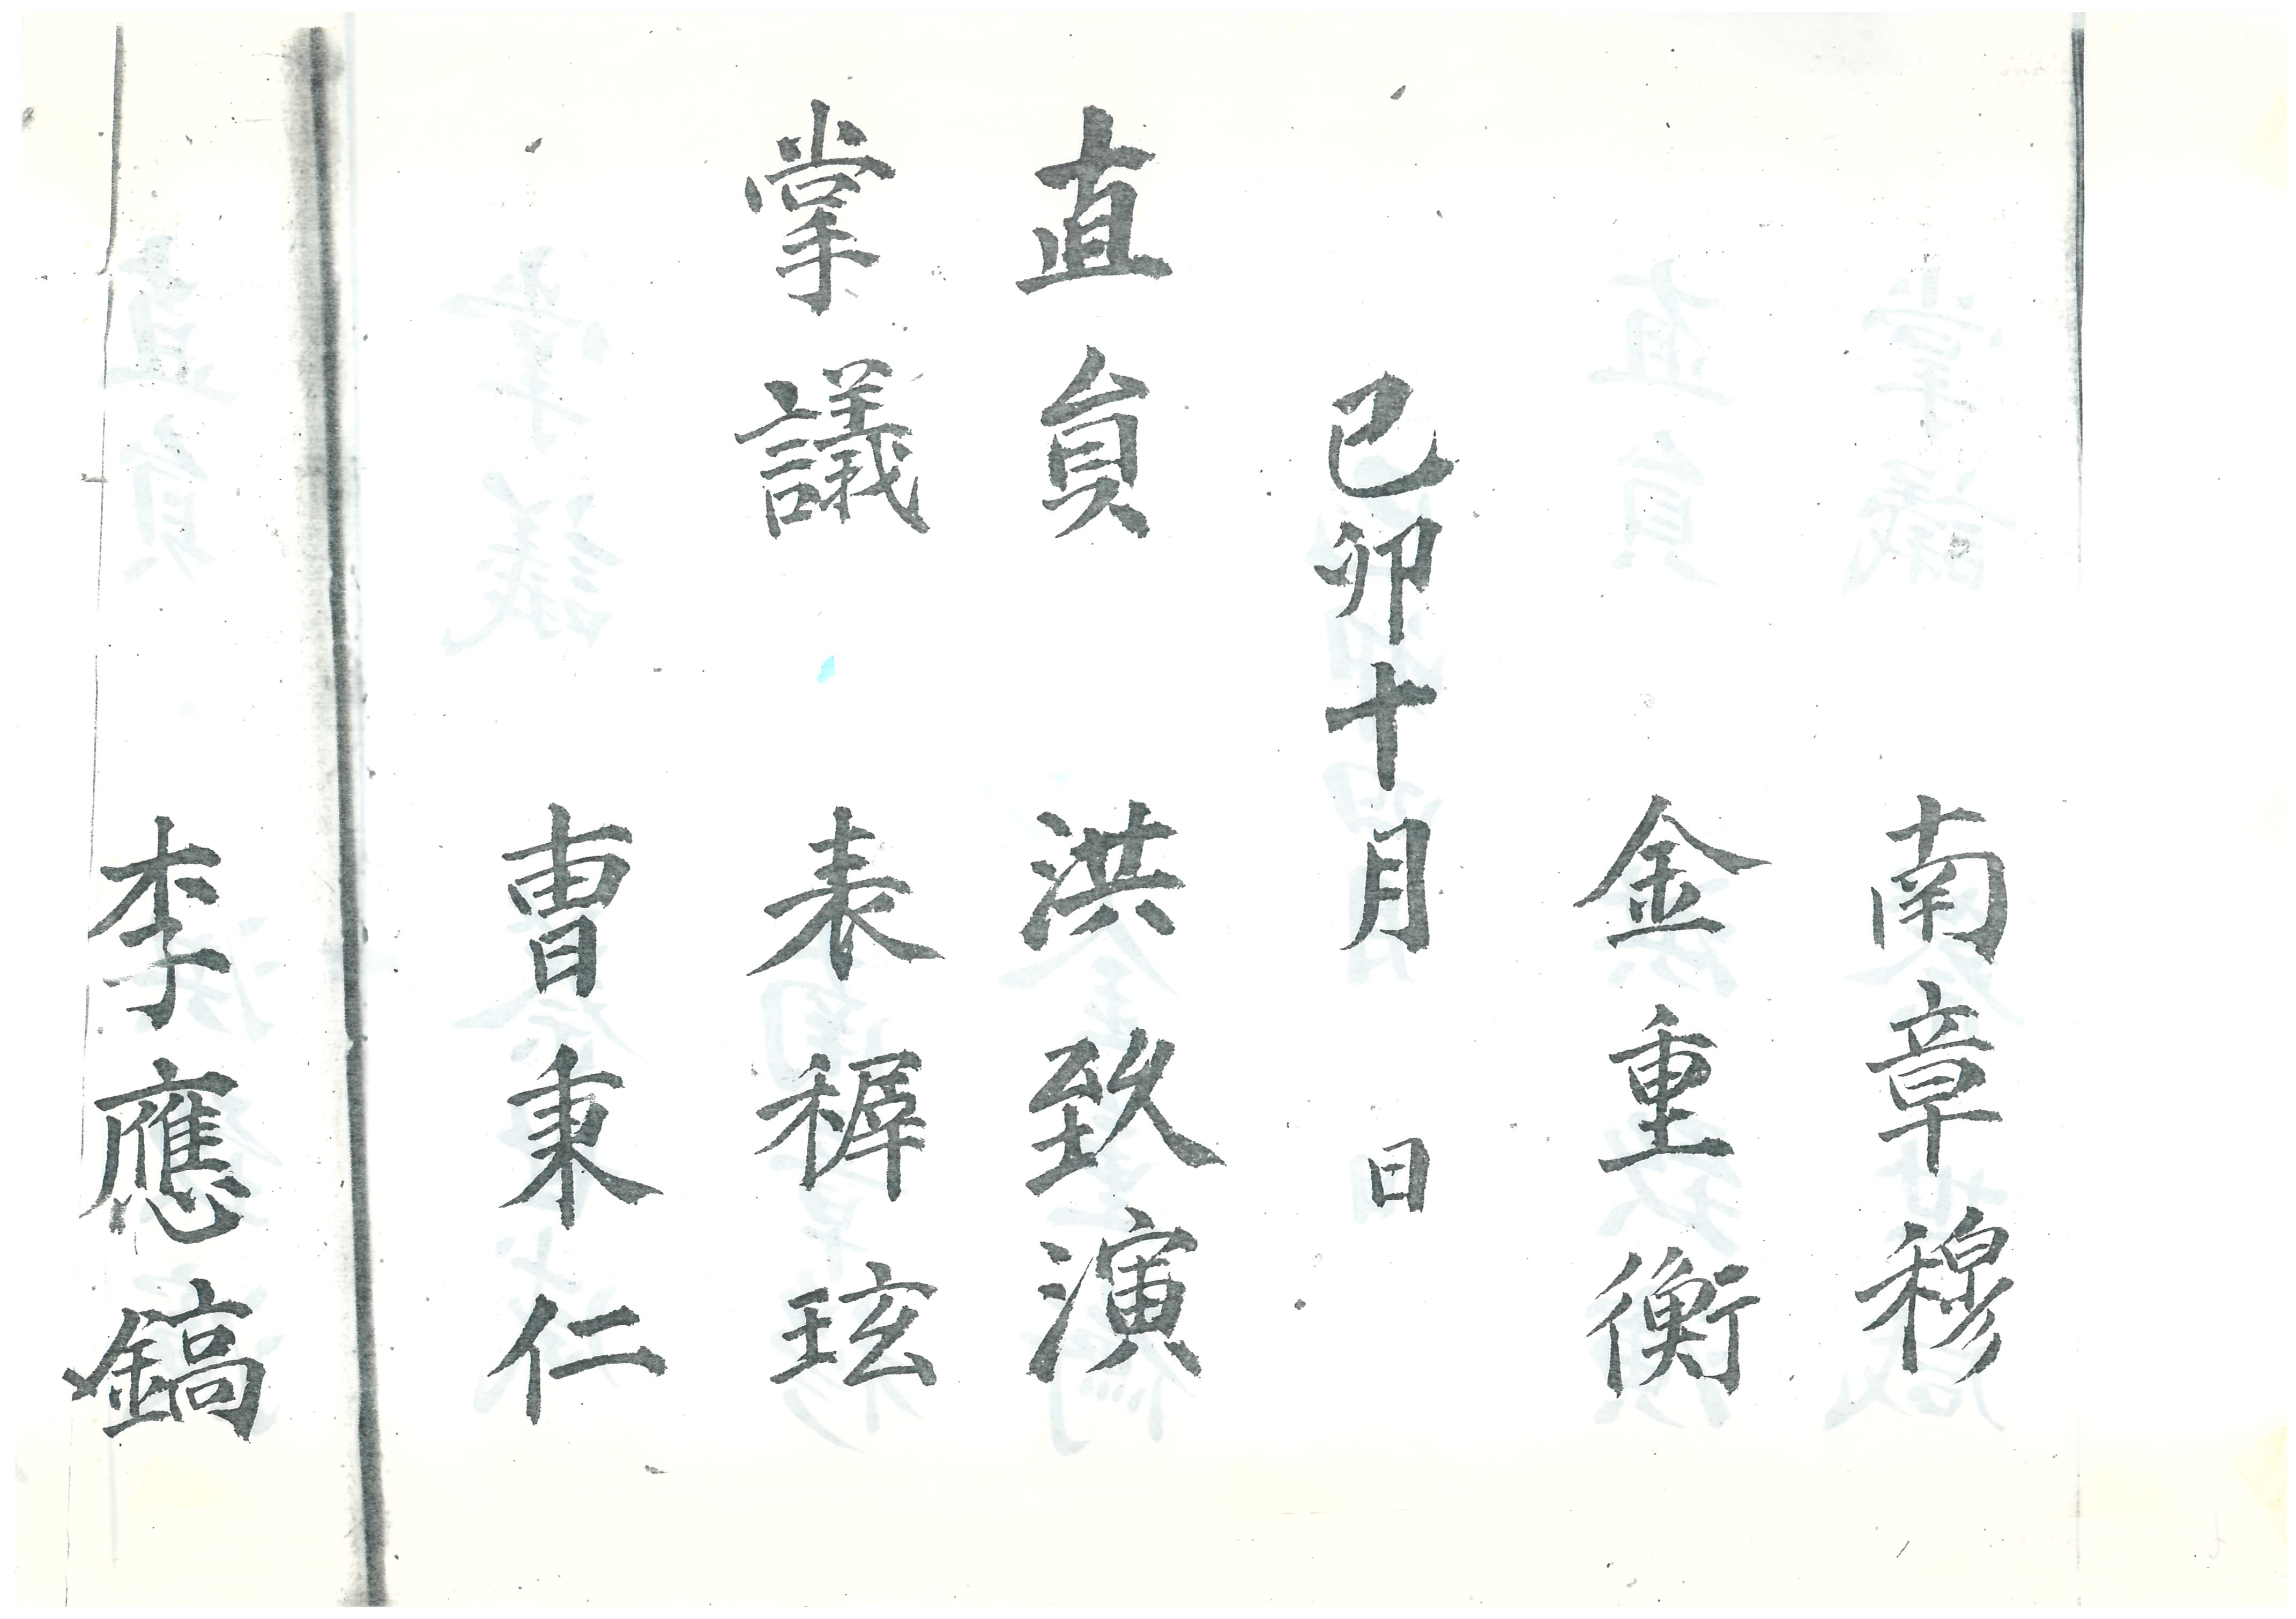 南章穆
金重衡
己卯十月 日
直員 洪致演
掌議 表穉玹
曺秉仁
李應鎬